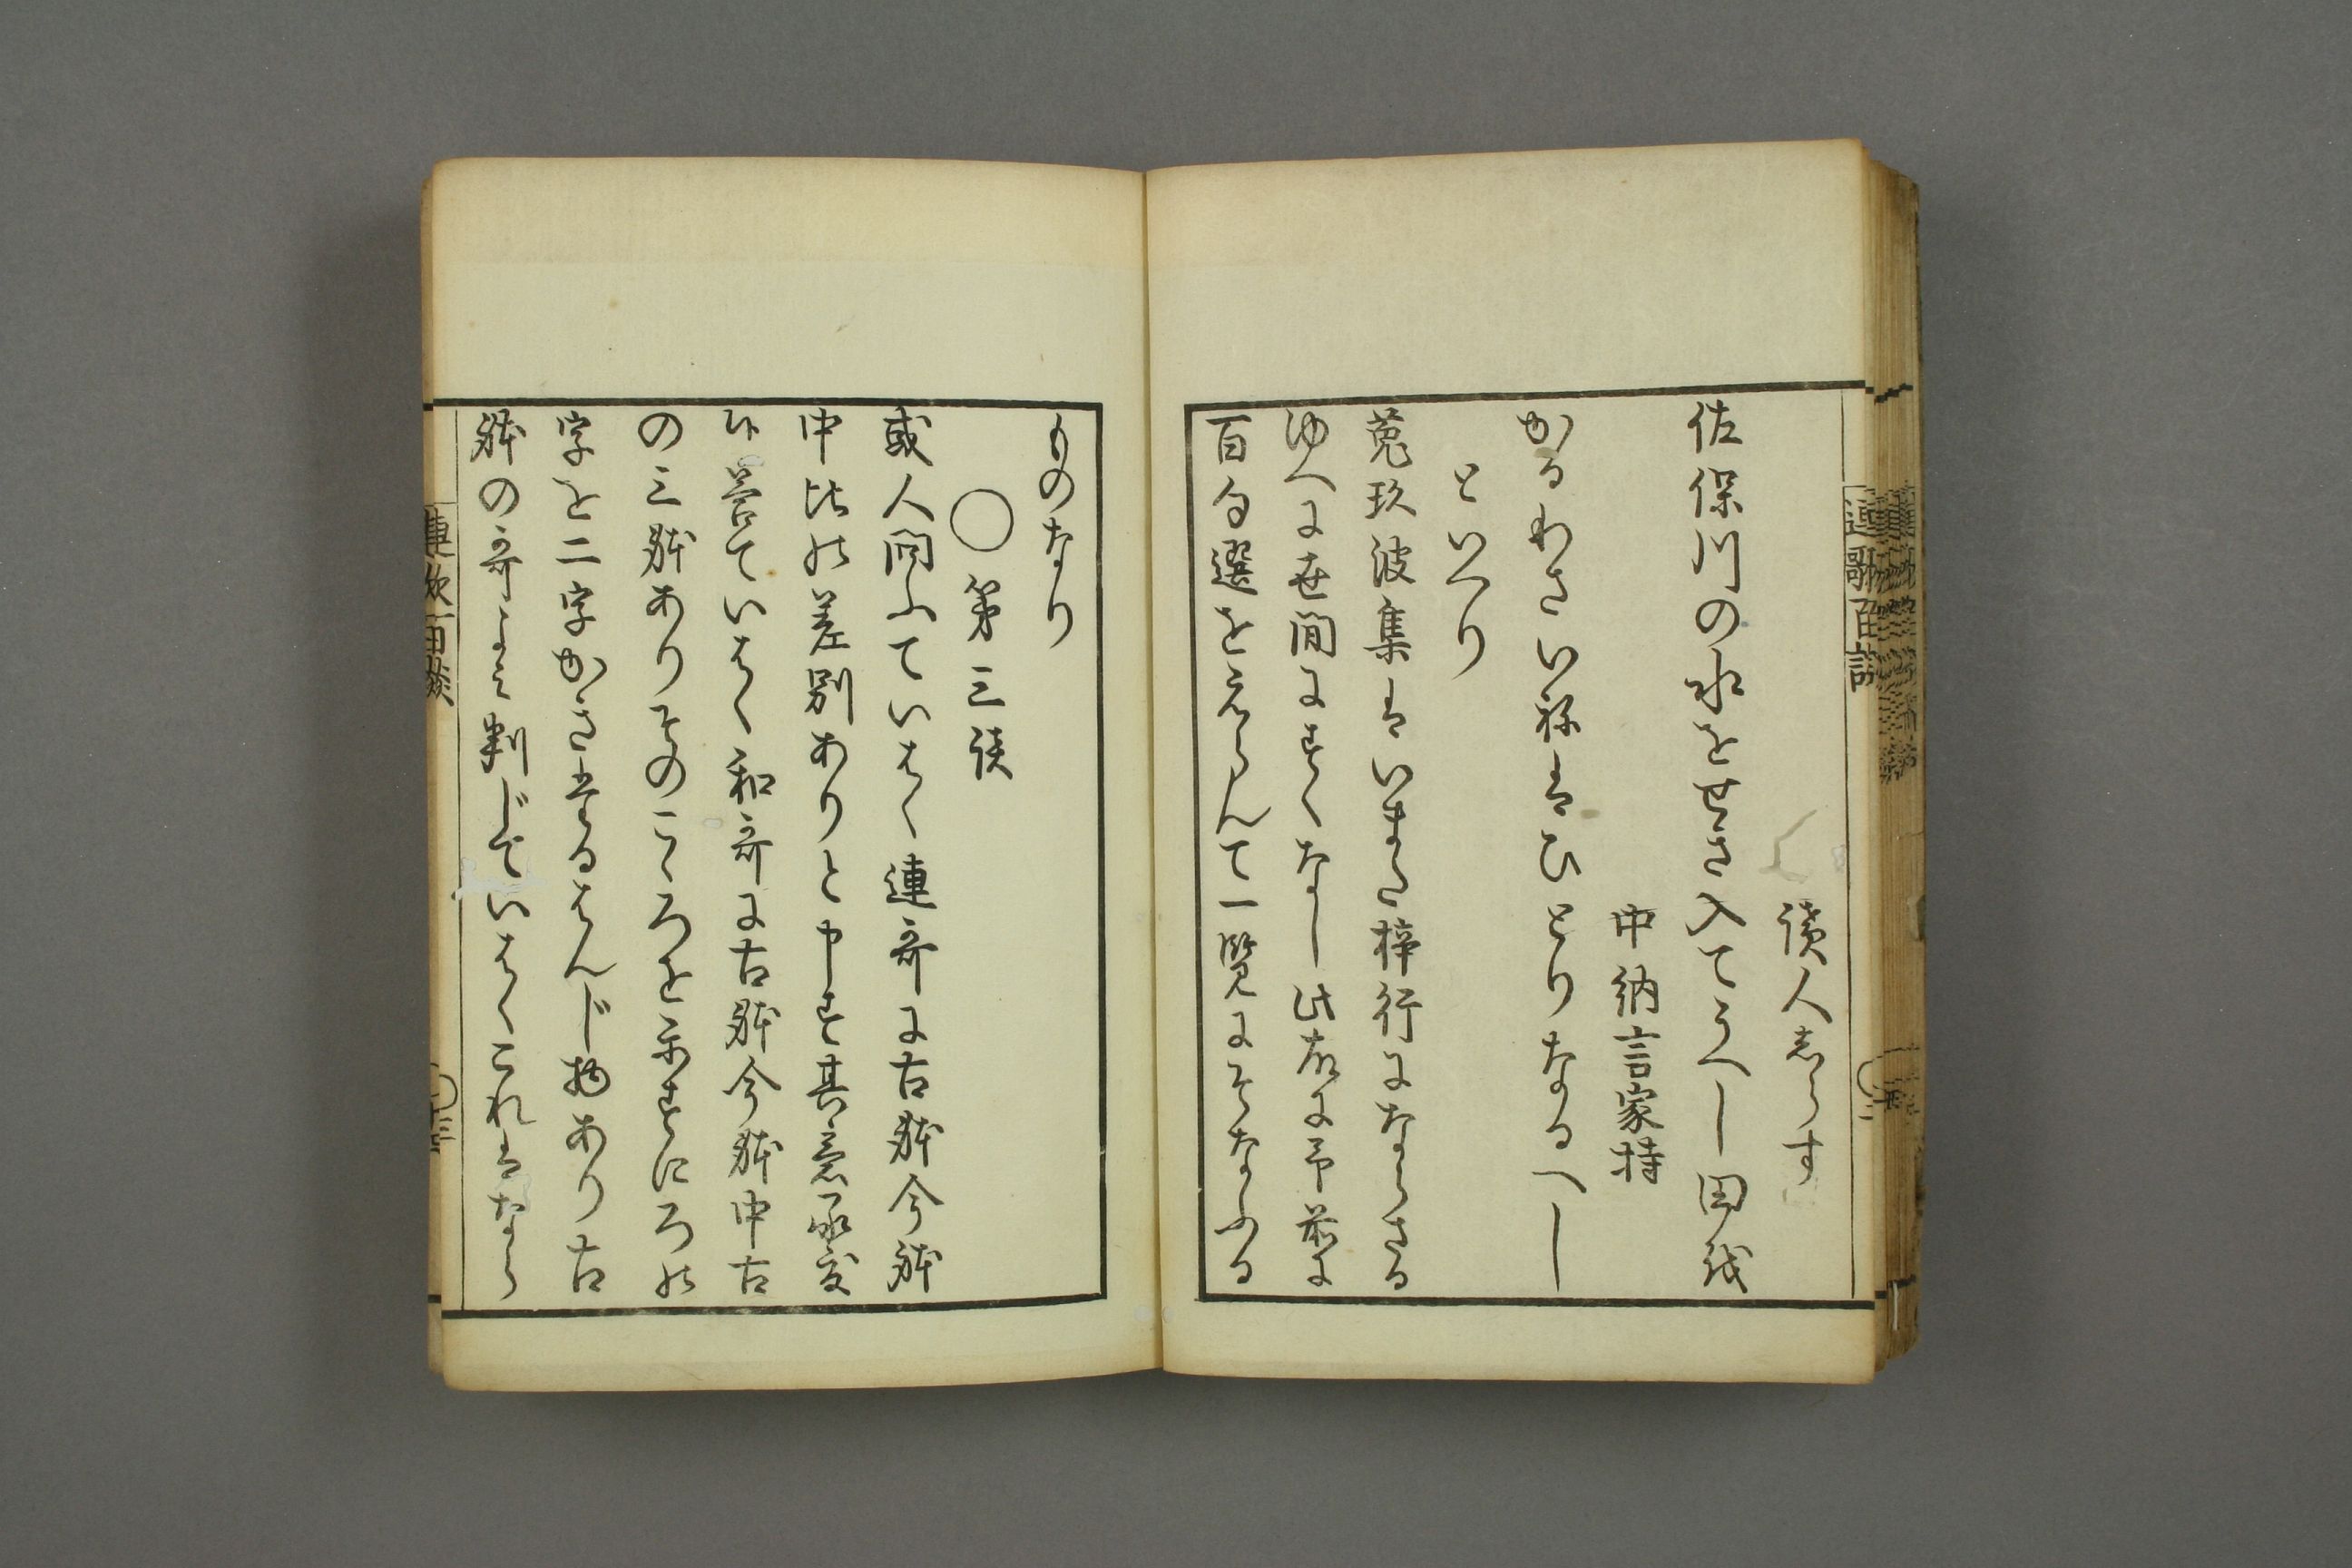 讀人志らす
佐保川の水をせき入てうへし田越
中納言家持
かるわさい称はひとりなるへし
といへり
菟玖波集はいまた梓行にならさる
ゆへに世間にすくなし此故に予前に
百句選をえらんて一覧にそなふる
ものなり
○第三談
或人問ふていはく連哥に古躰今躰
中比の差別ありと申す其意承度
候答ていはく和哥に古躰今躰中古
の三躰ありそのこゝろを示すにろの
字を二字かきたるはんじ物あり古
躰の哥よみ判じていはくこれはなら
連歌百談